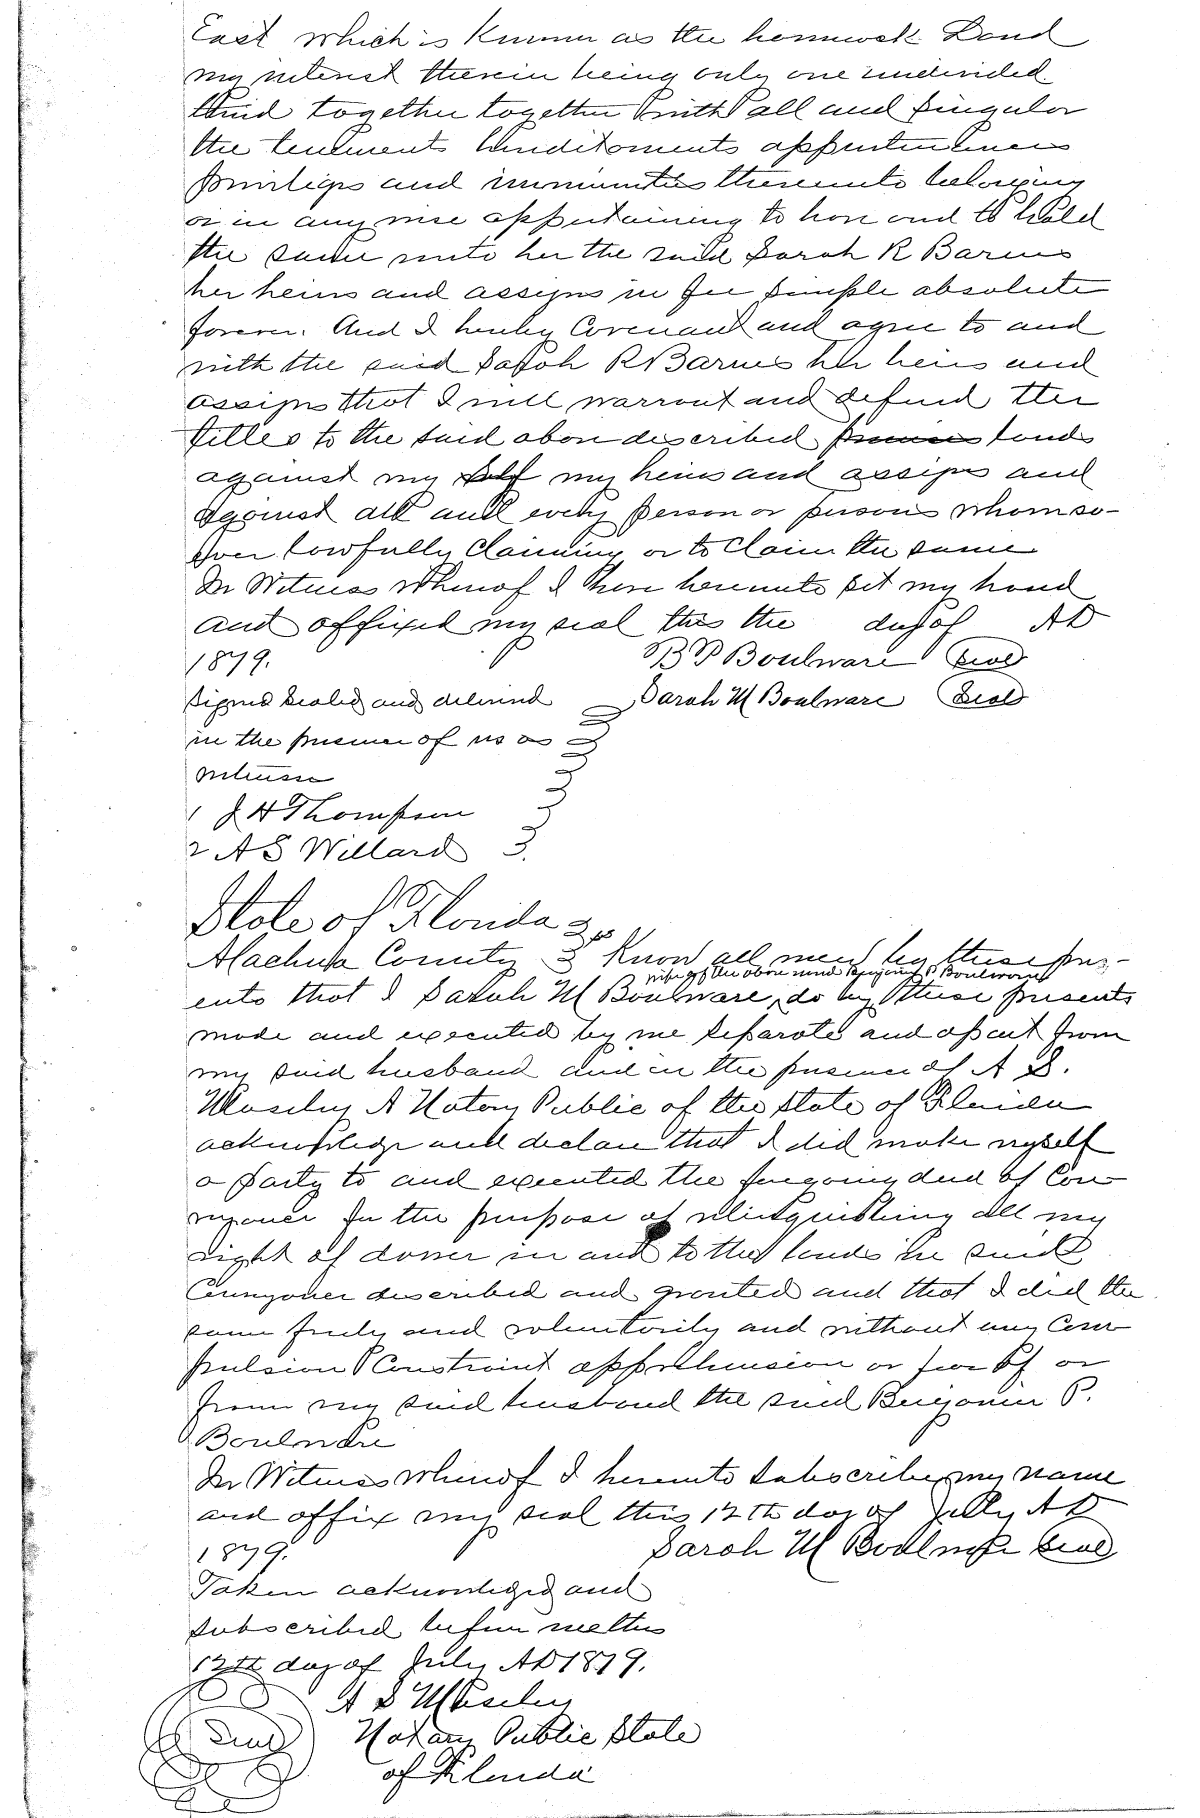 East which is known as the hommock Land
my interest therein being only one undivided
third together together with all and singular
the tenements hereditaments appurtenances
privileges and immunities thereunto belonging
or in any wise appertaining to have and to hold
the same unto her the said Sarah R Barnes
her heirs and assigns in fee simple absolute
forever. And I hereby Covenant and agree to and
with the said Sarah R Barnes her heirs and
assigns that I will warrant and defend the
titles to the said above described lands
against my self my heirs and assigns and
against all and every person or persons whomso-
ever lawfully Claiming or to Claim the same
In Witness Whereof I have hereunto set my hand
and affixed my seal this the day of AD
1879. B P Boulware Seal
Signed Sealed and delivered Sarah M Boulware Seal
in the presence of us as
witnesses
1 J H Thompson
2 A S Willard
State of Florida
Alachua County Know all men by these pres-
wife of the above named Benjamin P Boulware
ents that I Sarah M Boulware, do by these presents
made and executed by me separate and apart from
my said husband and in the presence of A S.
Moseley A Notary Public of the State of Florida
acknowledge and declare that I did make myself
a party to and executed the foregoing deed of Con
veyance for the purpose of relinquishing all my
right of dower in and to the lands in said
Conveyance described and granted and that I did the
same freely and voluntarily and without any Com
pulsion Constraint apprehension or fear of or
from my said husband the said Benjamin P.
Boulware
In Witness Whereof I hereunto subscribe my name
and affix my seal this 12th day of July AD
1879. Sarah M Boulware Seal
Taken acknowledged and
subscribed before me this
12th day of July AD 1879.
A S Moseley
Seal Notary Public State
of Florida